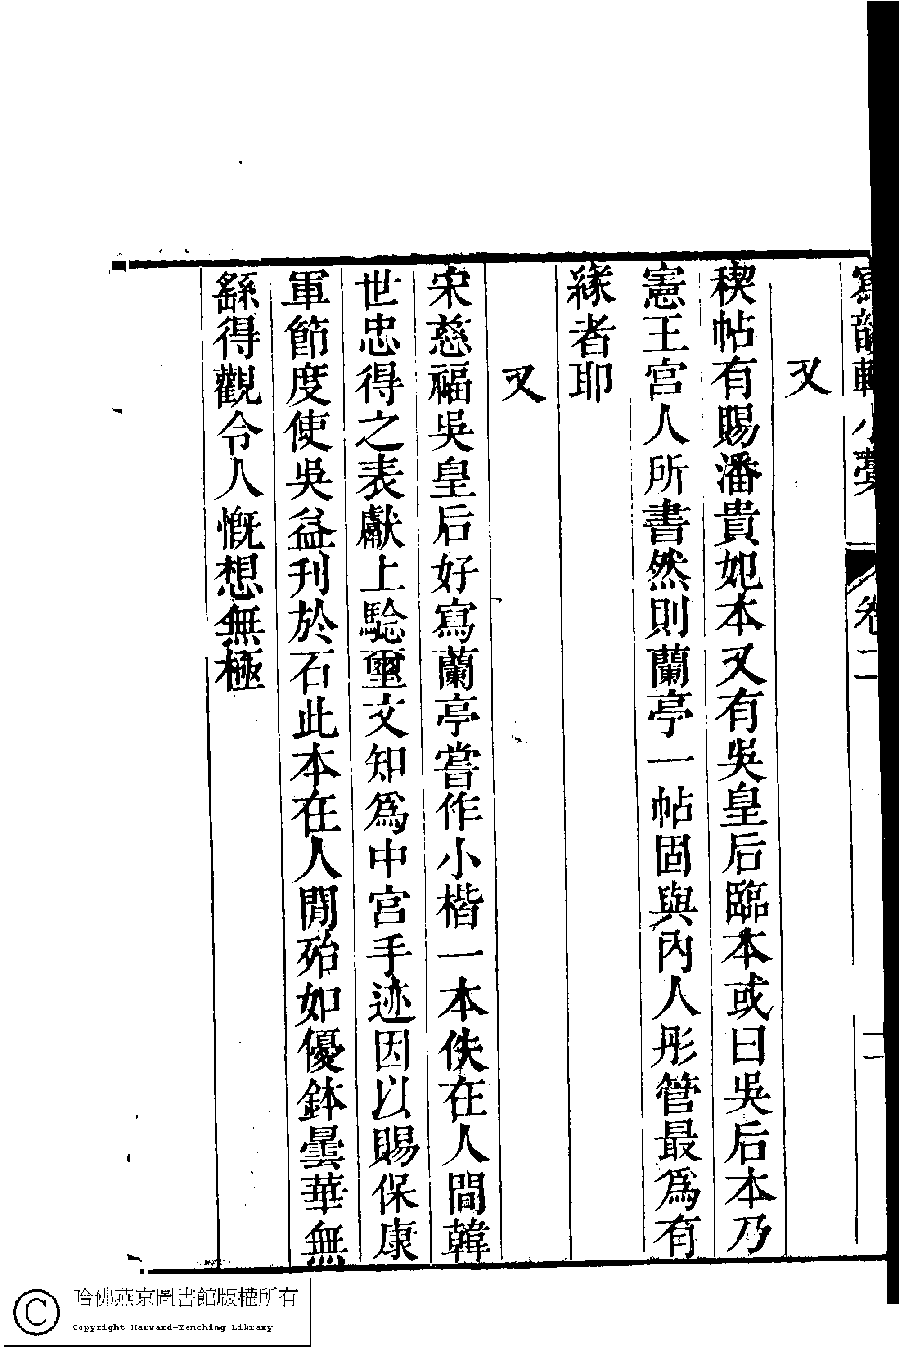 寫韻軒小藁 卷二 二
又
稧帖有賜潘貴妃本又有吳皇后臨本或曰吳后本乃
憲王宮人所書然則蘭亭一帖固與內人彤管最爲有
緣者耶
又
宋慈福吳皇后好寫蘭亭嘗作小楷一本佚在人間韓
世忠得之表獻上驗璽文知爲中宮手迹因以賜保康
軍節度使吳益刊於石此本在人間殆如優鉢曇華無
繇得觀令人慨想無極
哈佛燕京圖書館版權所有
Copyright Harvard-Yenching Library